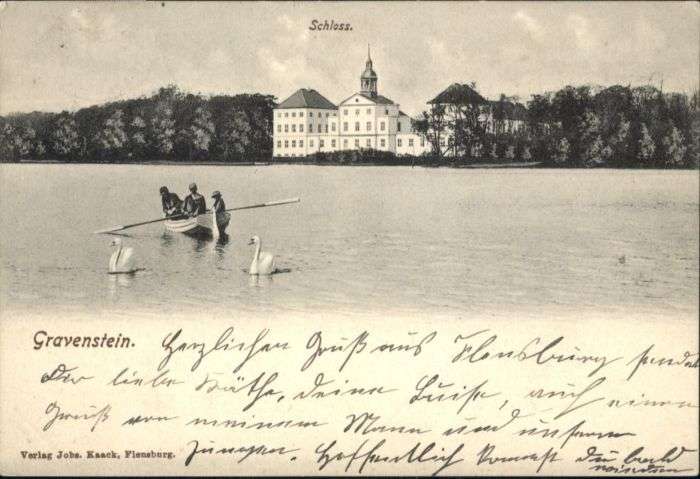 Schloss.
Gravenstein.
Herzlichen Gruß aus Flensburg sendet
Dir liebe Käthe, deine Luise, auch einen
Gruß von meinem Mann und unserm
Jungen. Hoffentlich kommst Du bald
Verlag Johs. Kaack, Flensburg.